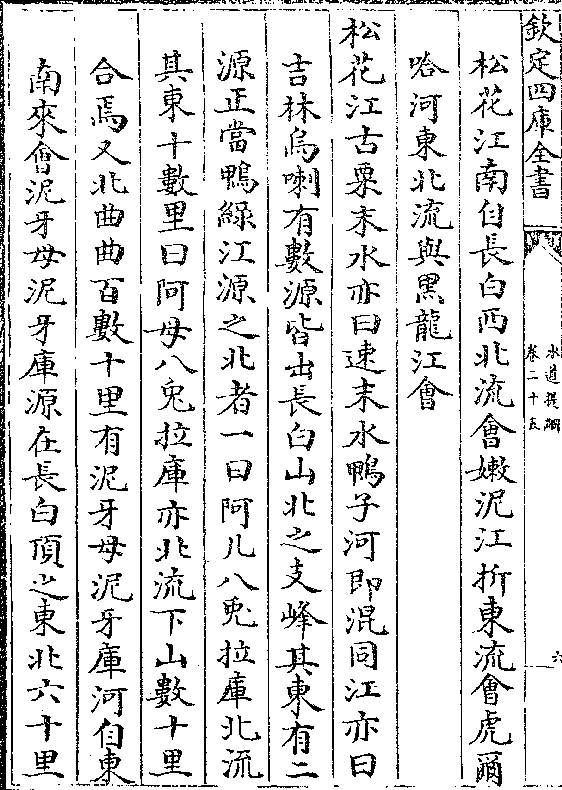 欽定四庫全書
水道提綱
卷二十五
六
松花江南自長白西北流會嫩泥江折東流會虎爾
哈河東北流與黑龍江會
松花江古粟末水亦曰速末水鴨子河即混同江亦曰
吉林烏喇有數源皆出長白山北之支峰其東有二
源正當鴨綠江源之北者一曰阿儿八兎拉庫北流
其東十數里曰阿母八兎拉庫亦北流下山數十里
合焉又北曲曲百數十里有泥牙母泥牙庫河自東
南來會泥牙母泥牙庫源在長白頂之東北六十里